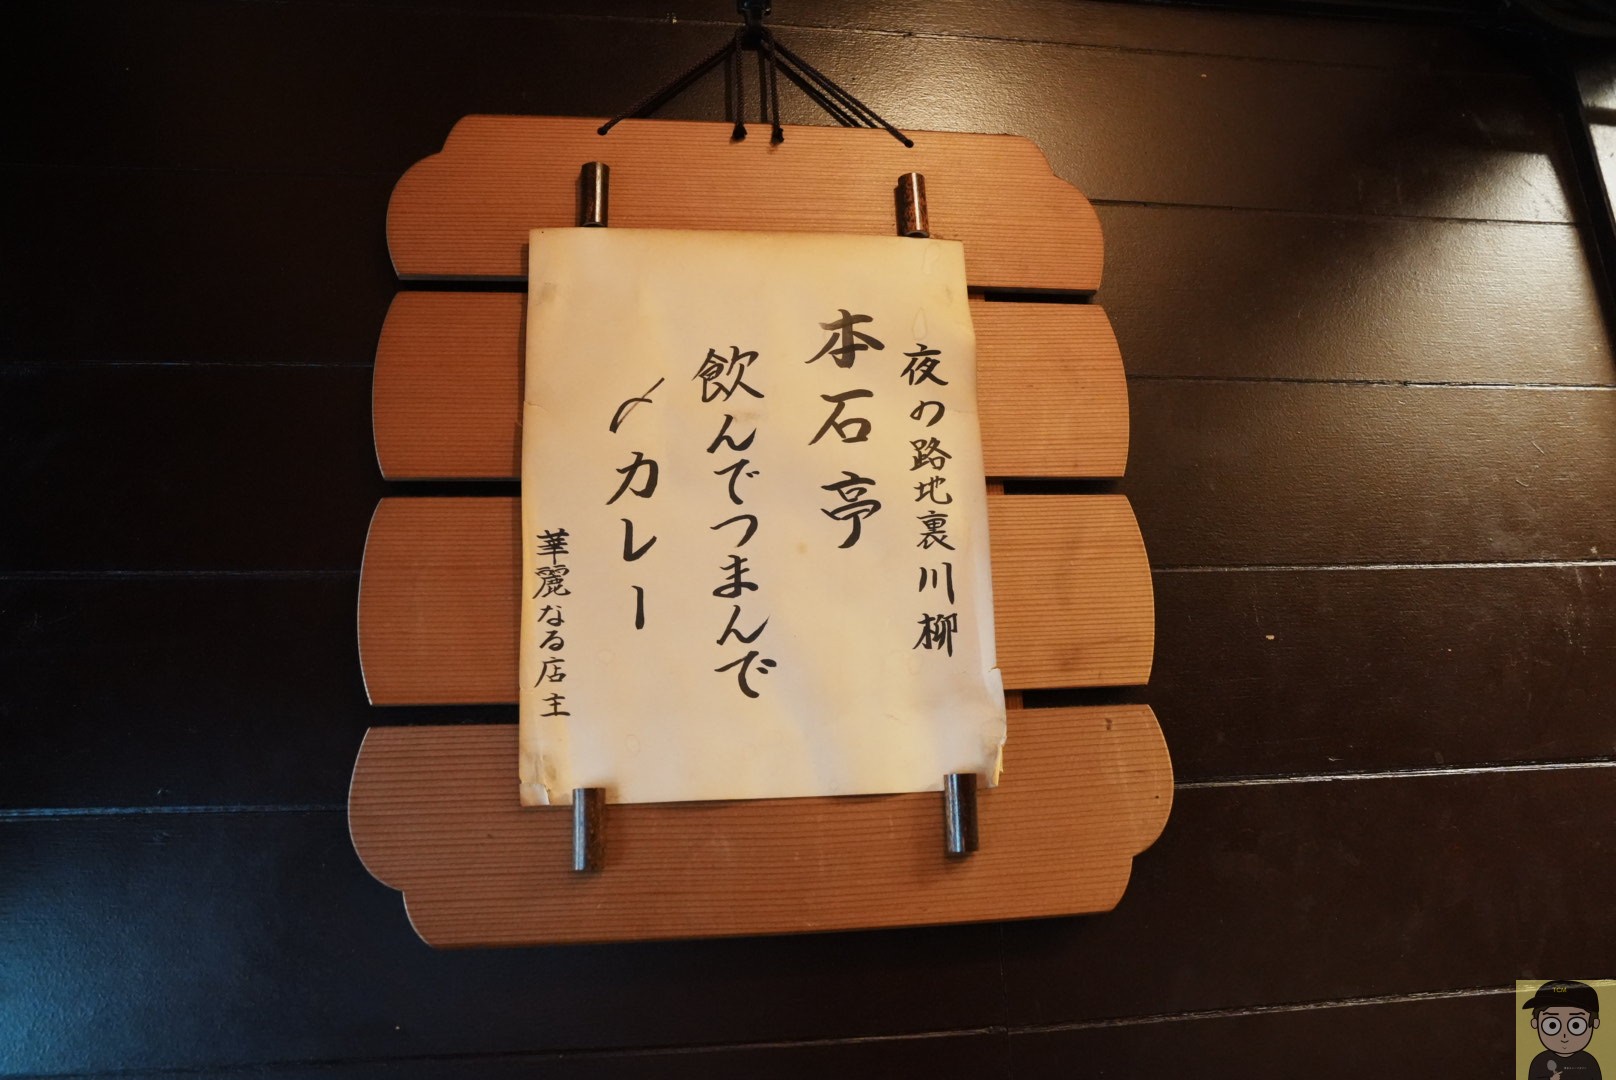 夜の路地裏川柳
本石亭
飲んでつまんで
〆カレー
華麗なる店主
TCM